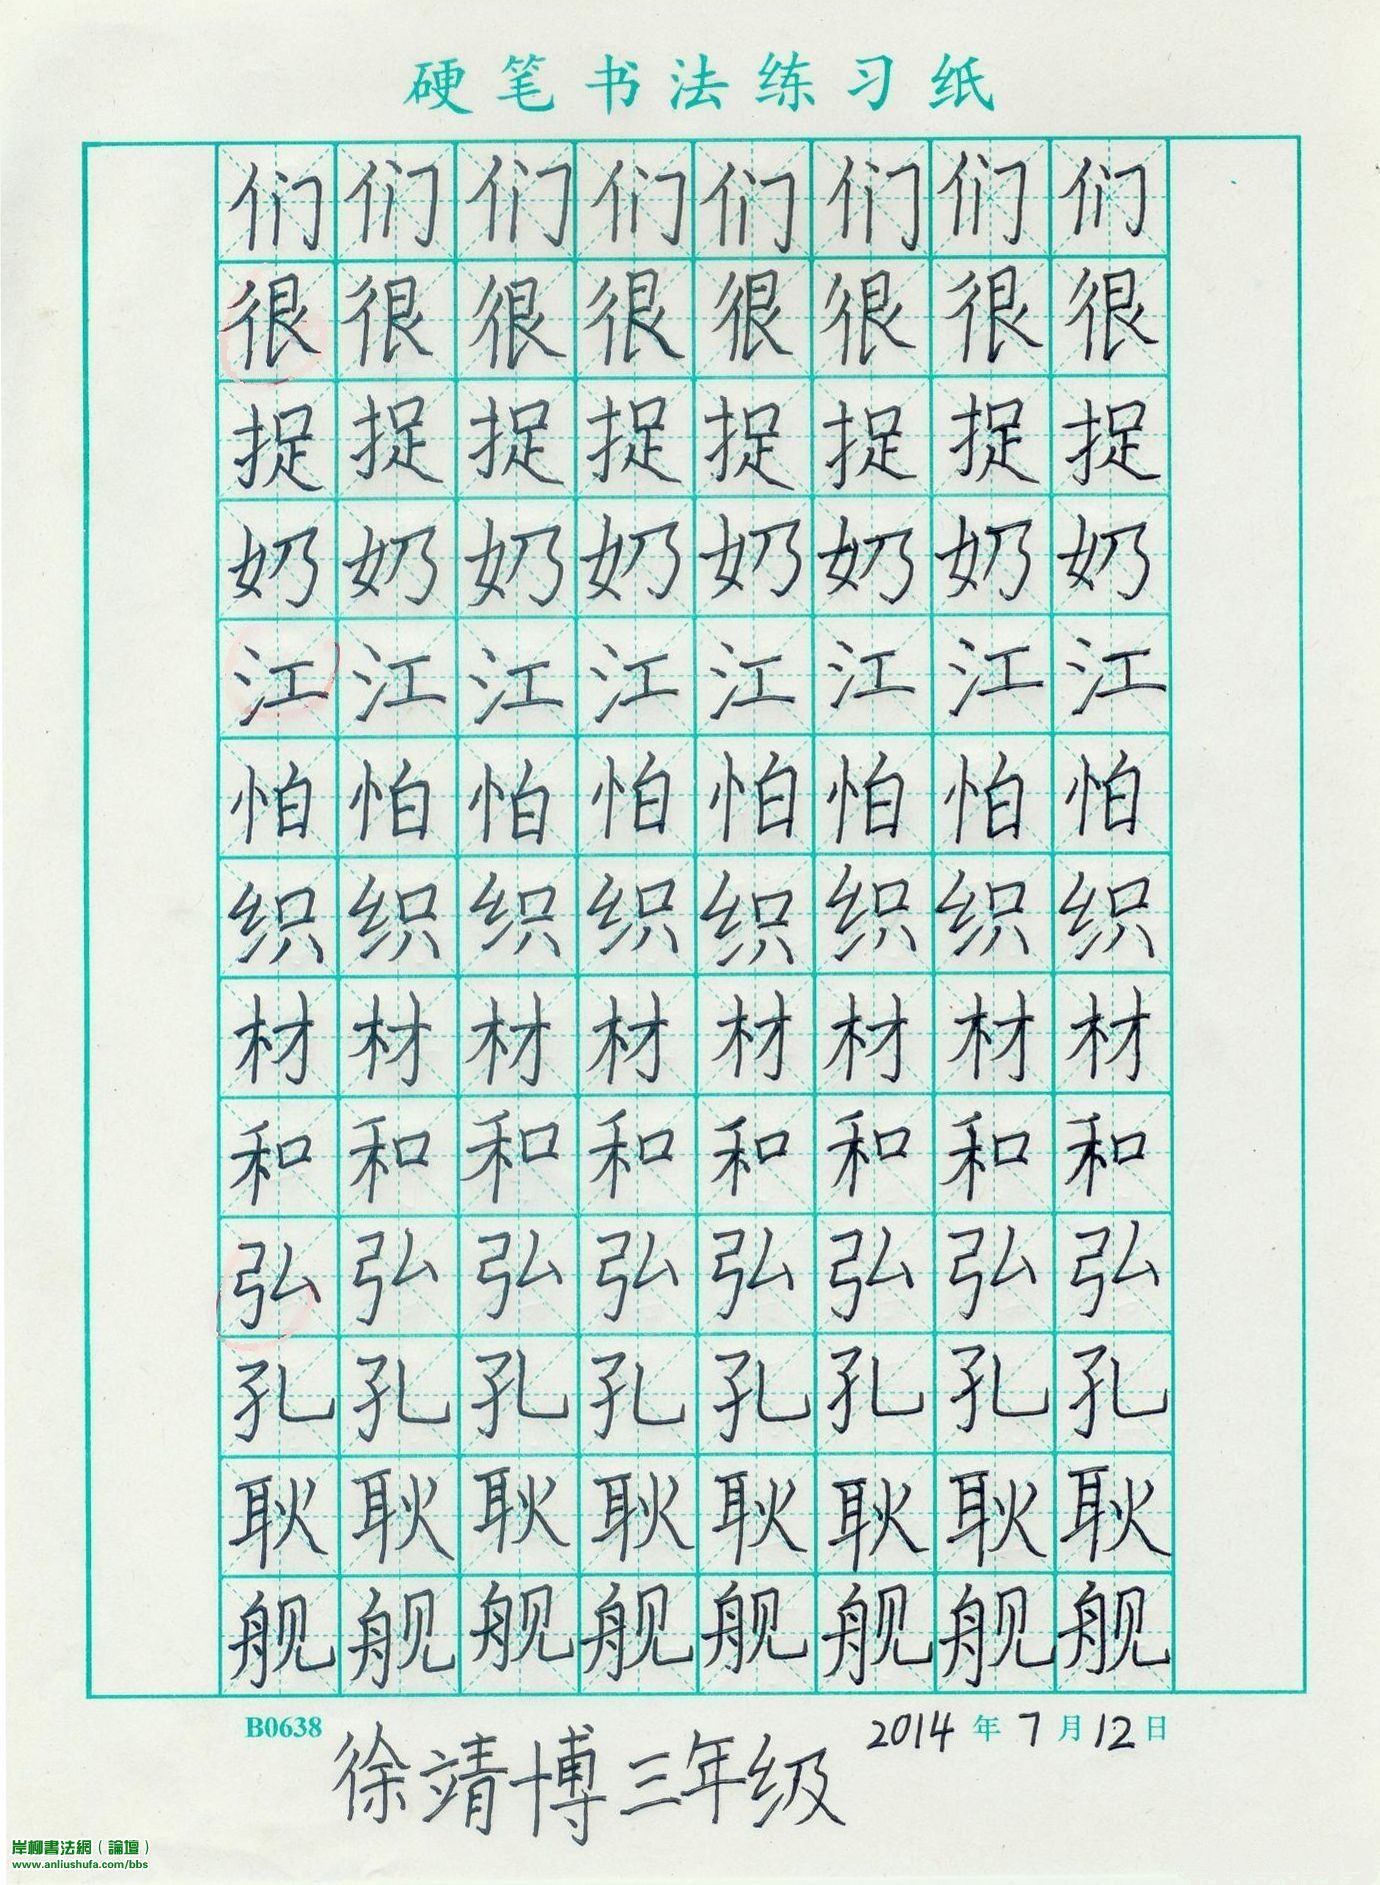 硬笔书法练习纸
们们们们们们们们
很很很很很很很很
捉捉捉捉捉捉捉捉
奶奶奶奶奶奶奶奶
江江江江江江江江
怕怕怕怕怕怕怕怕
织织织织织织织织
材材材材材材材材
和和和和和和和和
弘弘弘弘弘弘弘弘
孔孔孔孔孔孔孔孔
耿耿耿耿耿耿耿耿
舰舰舰舰舰舰舰舰
B0638 2014年7月12日
徐靖博三年级
岸柳書法網（論壇）
www.anliushufa.com/bbs